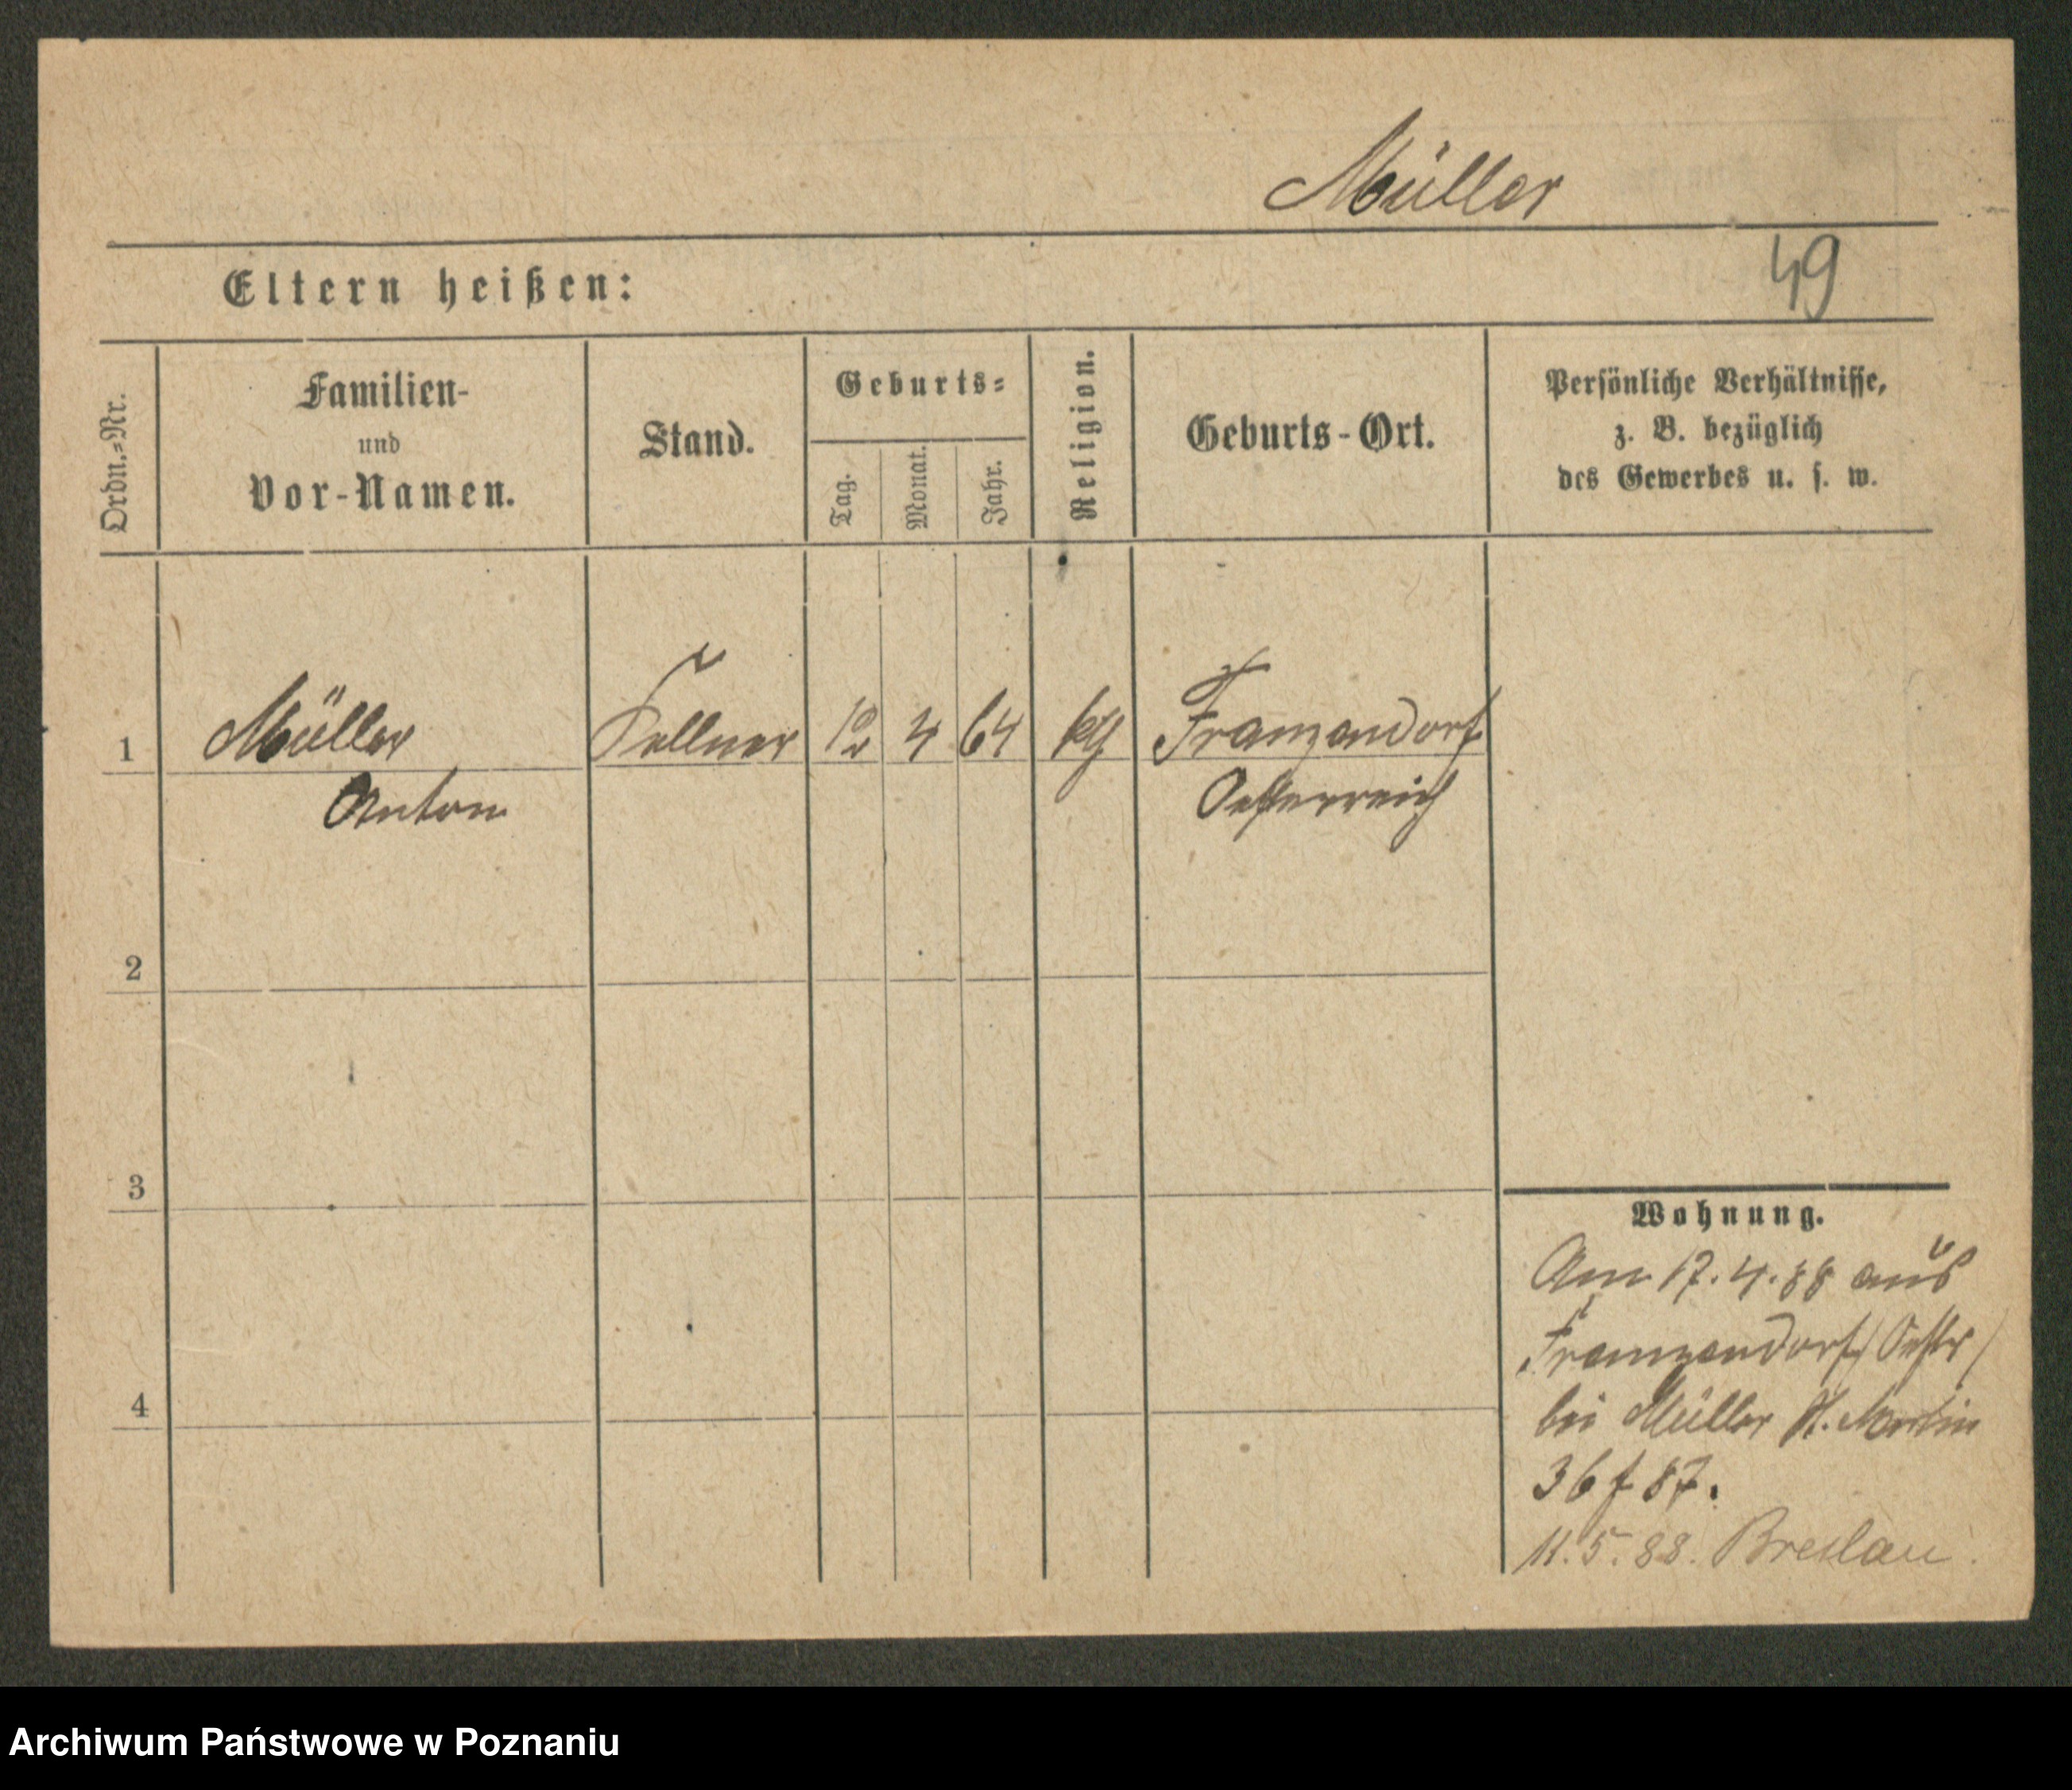 Müller
49
Eltern heißen:
Ordn.-Nr.
Familien-
und
Vor-Namen.
Stand.
Geburts-
Tag.
Monat.
Jahr.
Religion.
Geburts-Ort.
Persönliche Verhältnisse,
z. B. bezüglich
des Gewerbes u. s. w.
1 Müller Kellner 4 64 Franzendorf
Anton Oesterreich
2
3
4
Wohnung.
Am 17.4.88 aus
Franzendorf (Oestr)
bei Müller St. Martin
36 f 87.
11.5.88. Breslau.
Archiwum Państwowe w Poznaniu